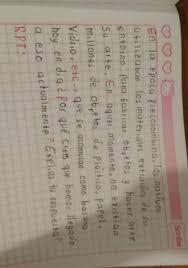 En la época precolombina, los nativos
utilizaban los materiales extraídos de su
entorno para fabricar objetos, y hacer arte
su arte. En aquel momento, no existían
millones de objetos de plástico, papel,
vidrio, etc, que se acumulan como basura
hoy en día ¿Por qué crees que hemos llegado
a eso actualmente? Explica tu respuesta
RPT: